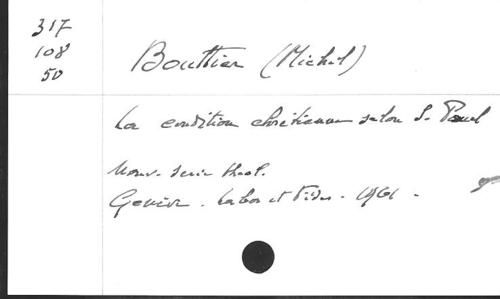 317
108
50
Bouttier (Michel)
La condition chrétienne selon S. Paul
Nouv. série théol.
Genève. Labor et Fides. 1964.